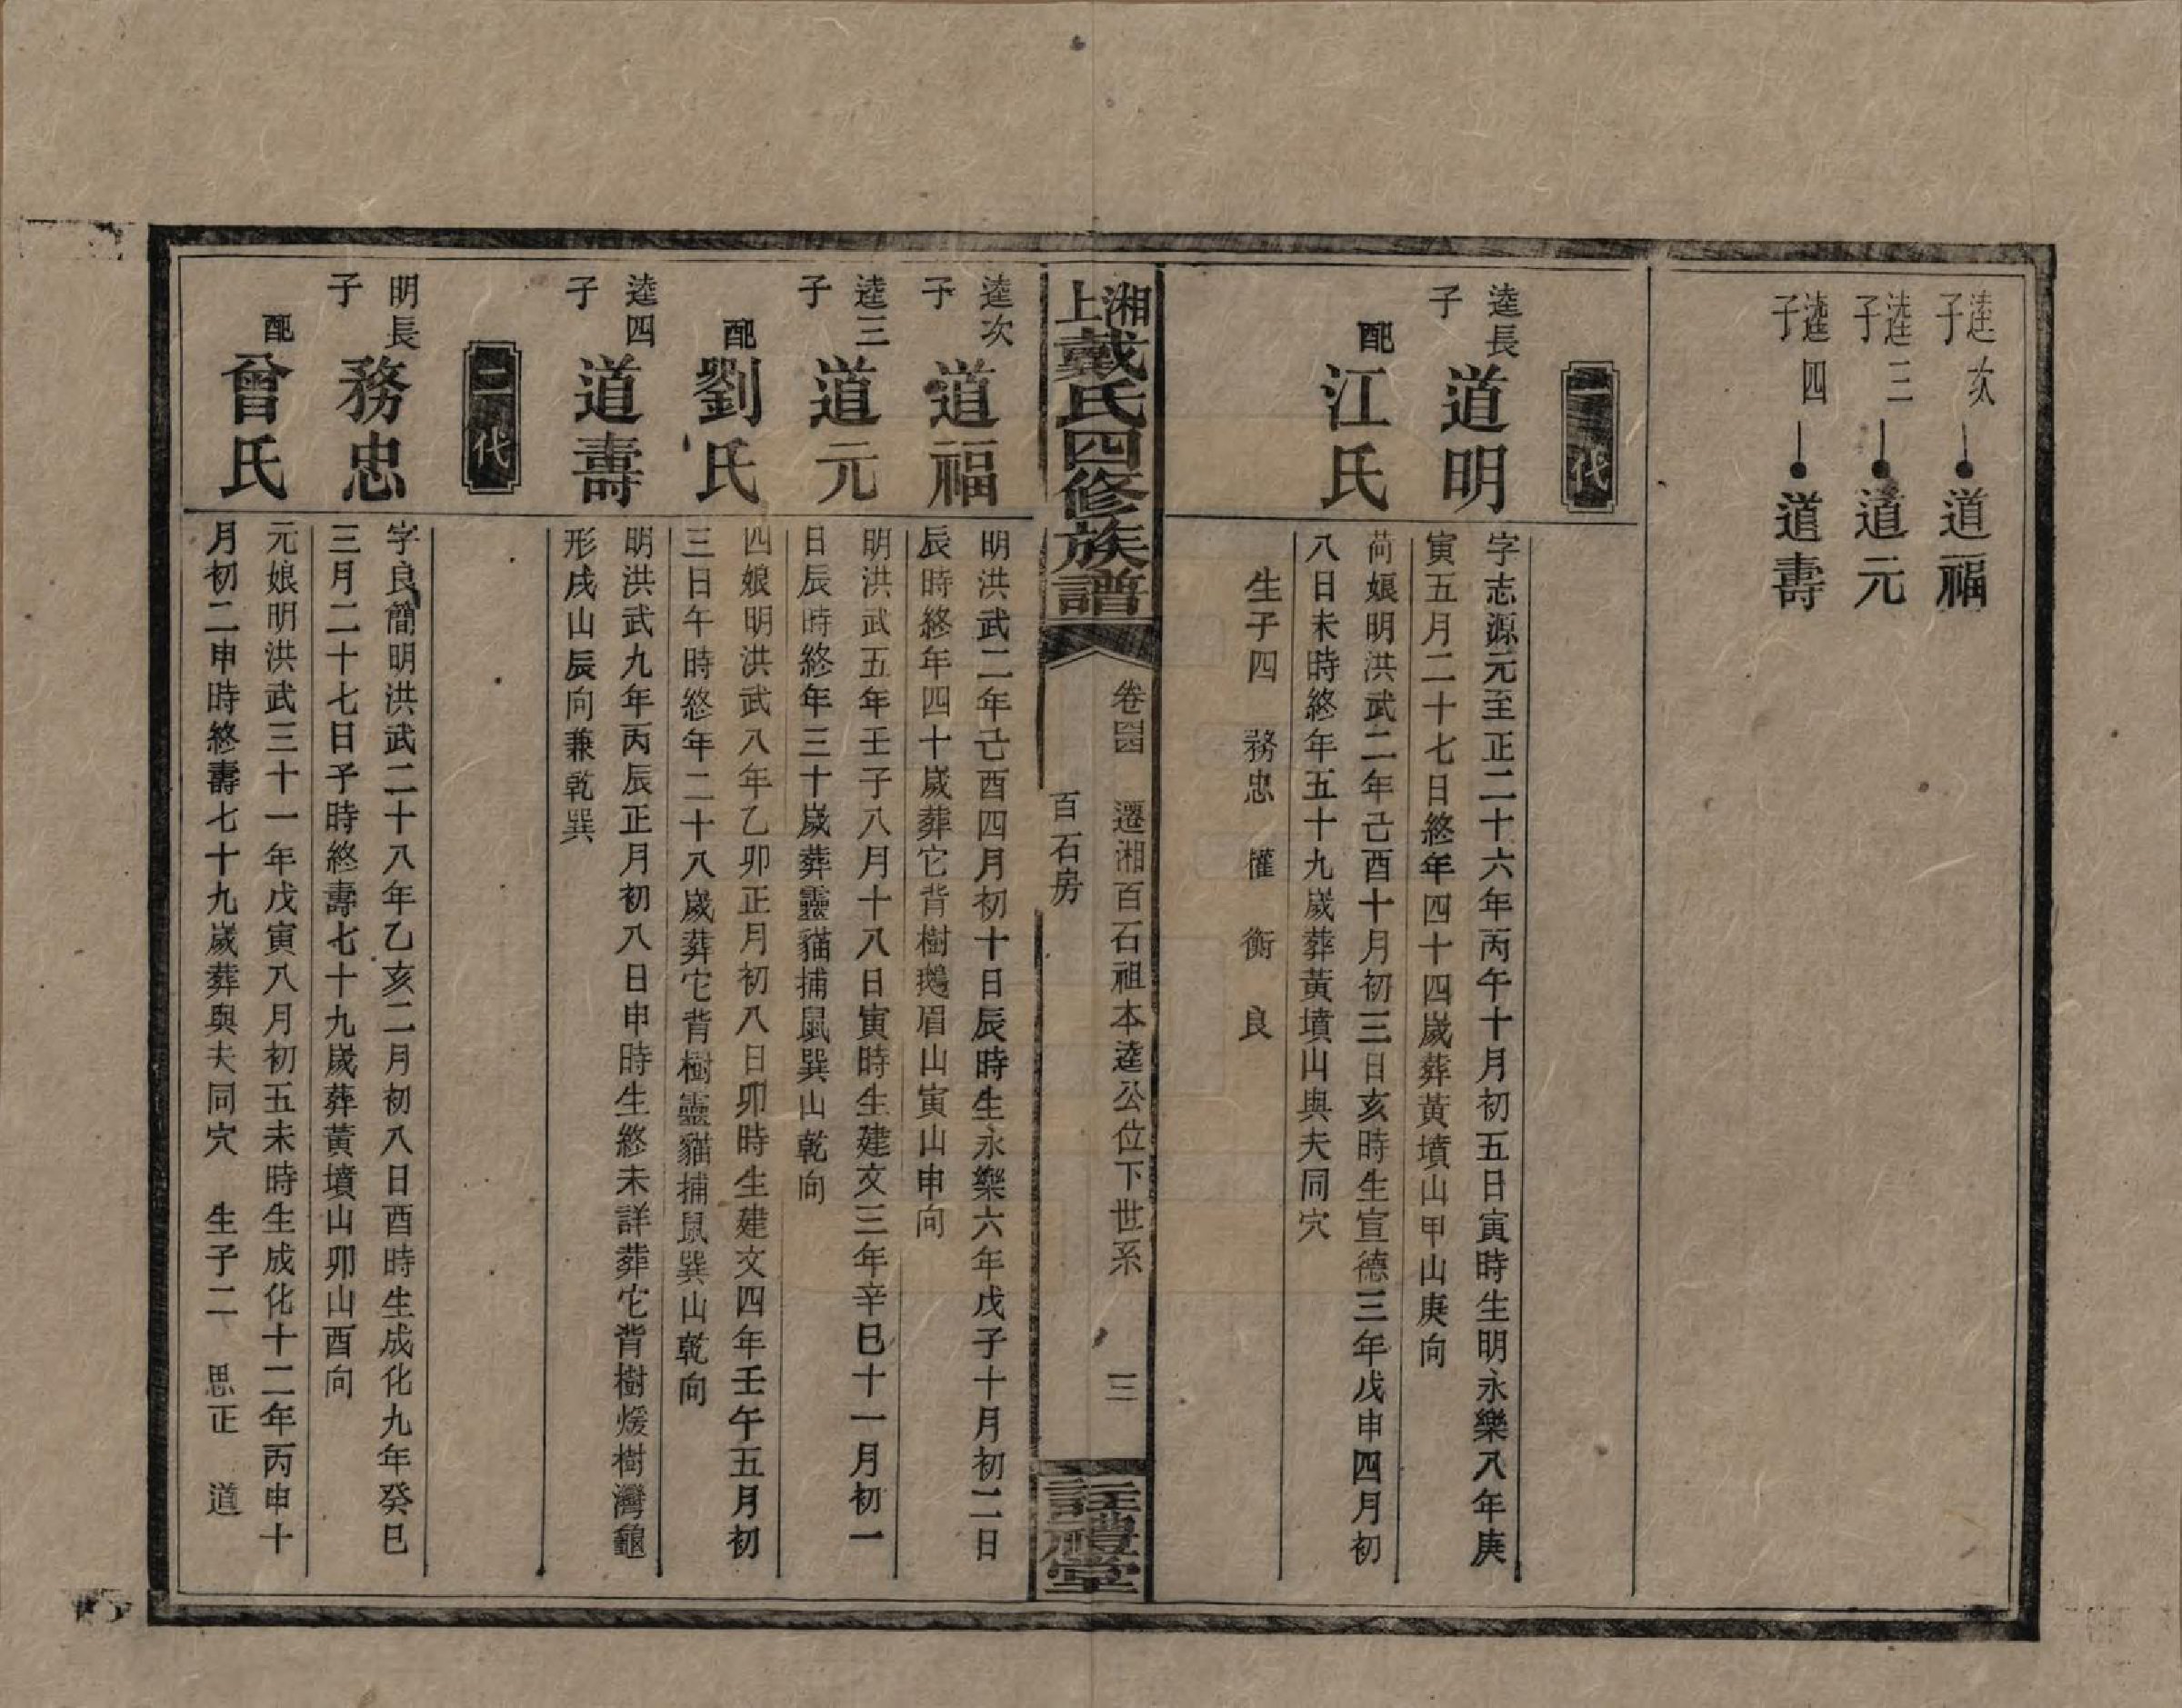 逵次子 道福
逵三子 道元
逵四子 道壽
一代
逵長子 道明
字志源元至正二十六年丙午十月初五日寅時生明永樂八年庚
寅五月二十七日終年四十四歲葬黃墳山甲山庚向
配 江氏
荷娘明洪武二年己酉十月初三日亥時生宣德三年戊申四月初
八日未時終年五十九歲葬黃墳山與夫同穴
生子四 務忠 權 衡 良
湘上戴氏四修族譜
卷四 遷湘百石祖本逵公位下世系 三
百石房
註禮堂
逵次子 道福
明洪武二年己酉四月初十日辰時生永樂六年戊子十月初二日
辰時終年四十歲葬它背樹鵝眉山寅山申向
逵三子 道元
明洪武五年壬子八月十八日寅時生建文三年辛巳十一月初一
日辰時終年三十歲葬靈貓捕鼠巽山乾向
配 劉氏
四娘明洪武八年乙卯正月初八日卯時生建文四年壬午五月初
三日午時終年二十八歲葬它背樹靈貓捕鼠巽山乾向
逵四子 道壽
明洪武九年丙辰正月初八日申時生終未詳葬它背樹煖樹灣龜
形戌山辰向兼乾巽
二代
明長子 務忠
字良簡明洪武二十八年乙亥二月初八日酉時生成化九年癸巳
三月二十七日子時終壽七十九歲葬黃墳山卯山酉向
配 曾氏
元娘明洪武三十一年戊寅八月初五未時生成化十二年丙申十
月初二申時終壽七十九歲葬與夫同穴 生子二 思正 道